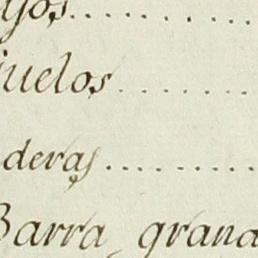 yos..........
uelos..........
deras..........
Barra, grana